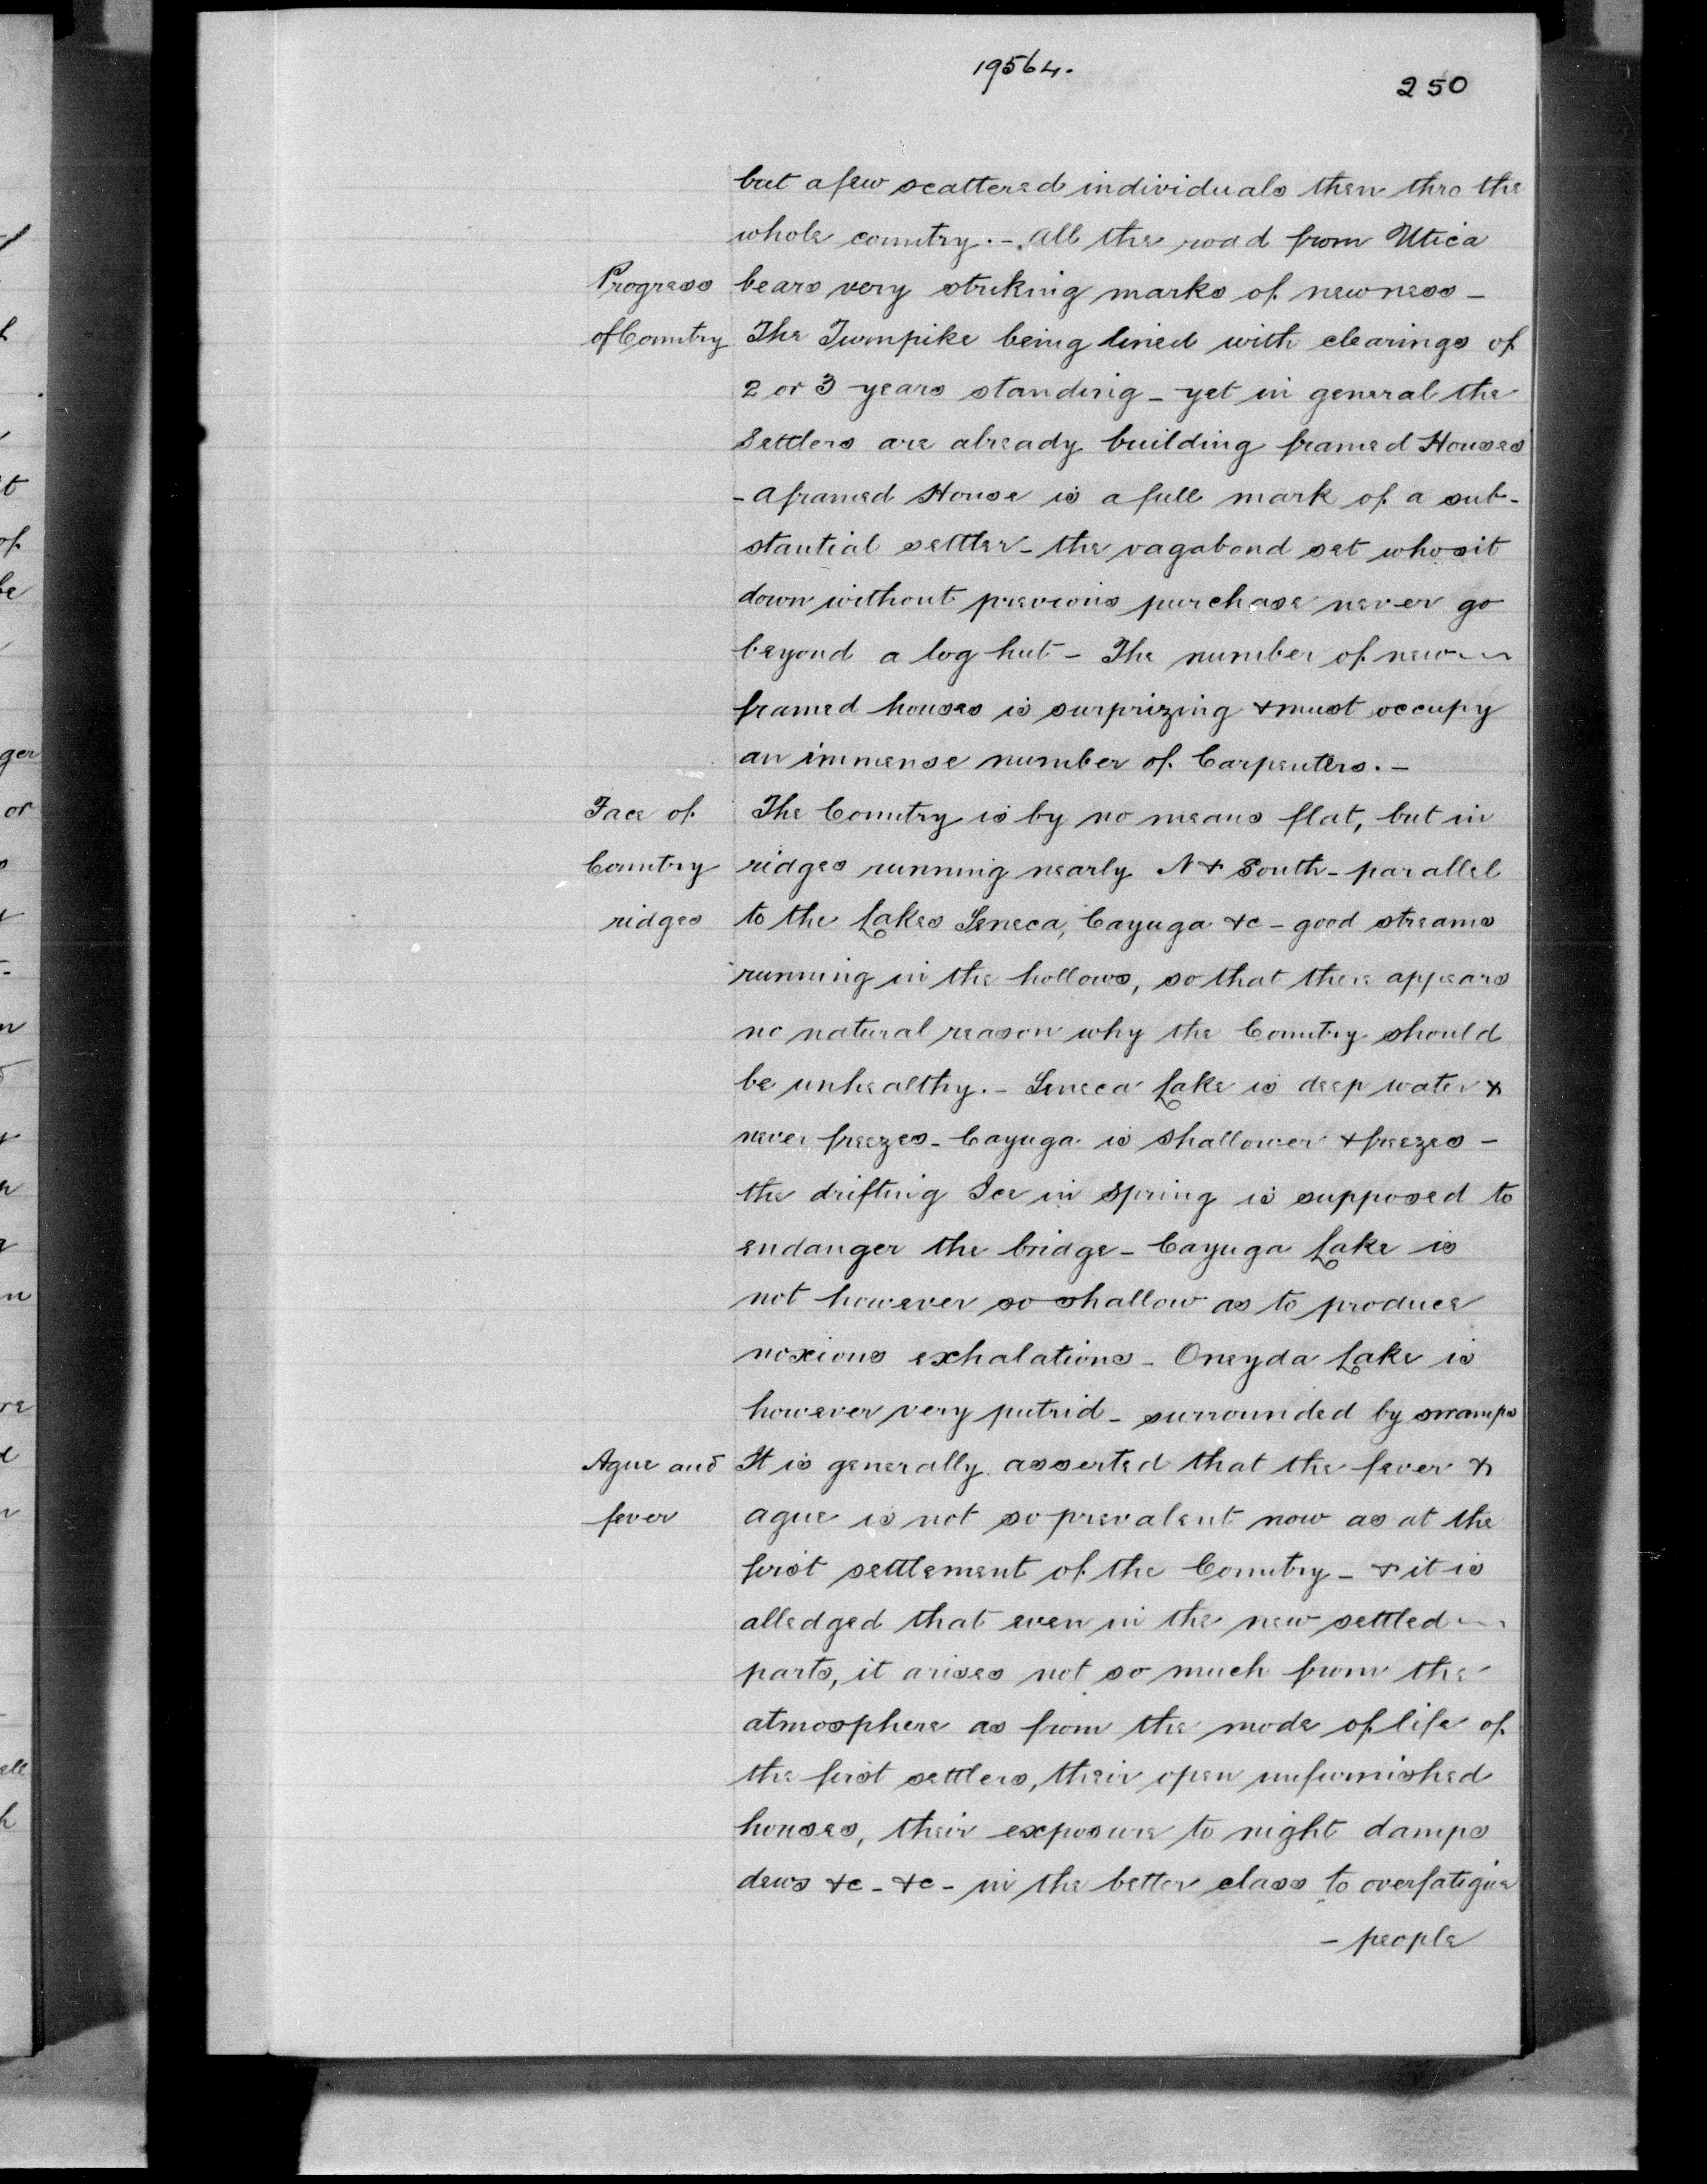 19564.
250
but a few scattered individuals then thro the
whole country. - All the road from Utica
Progress bears very striking marks of newness -
of Country The Turnpike being lined with clearings of
2 or 3 years standing - yet in general the
Settlers are already building framed Houses
- A framed House is a full mark of a sub-
stantial settler - the vagabond set who sit
down without previous purchase never go
beyond a log hut - The number of new
framed houses is surprizing & must occupy
an immense number of Carpenters. -
Face of The Country is by no means flat, but in
Country ridges running nearly N & South - parallel
ridges to the Lakes Seneca, Cayuga &c - good streams
running in the hollows, so that there appears
no natural reason why the Country should
be unhealthy. - Seneca Lake is deep water &
never freezes - Cayuga is shallower & freezes -
the drifting Ice in Spring is supposed to
endanger the bridge - Cayuga Lake is
not however so shallow as to produce
noxious exhalations - Oneyda Lake is
however very putrid - surrounded by swamps
Ague and It is generally asserted that the fever &
fever ague is not so prevalent now as at the
first settlement of the Country - & it is
alledged that even in the new settled
parts, it arises not so much from the
atmosphere as from the mode of life of
the first settlers, their open unfurnished
houses, their exposure to night damps
dews &c - &c - in the better class to overfatigue
- people